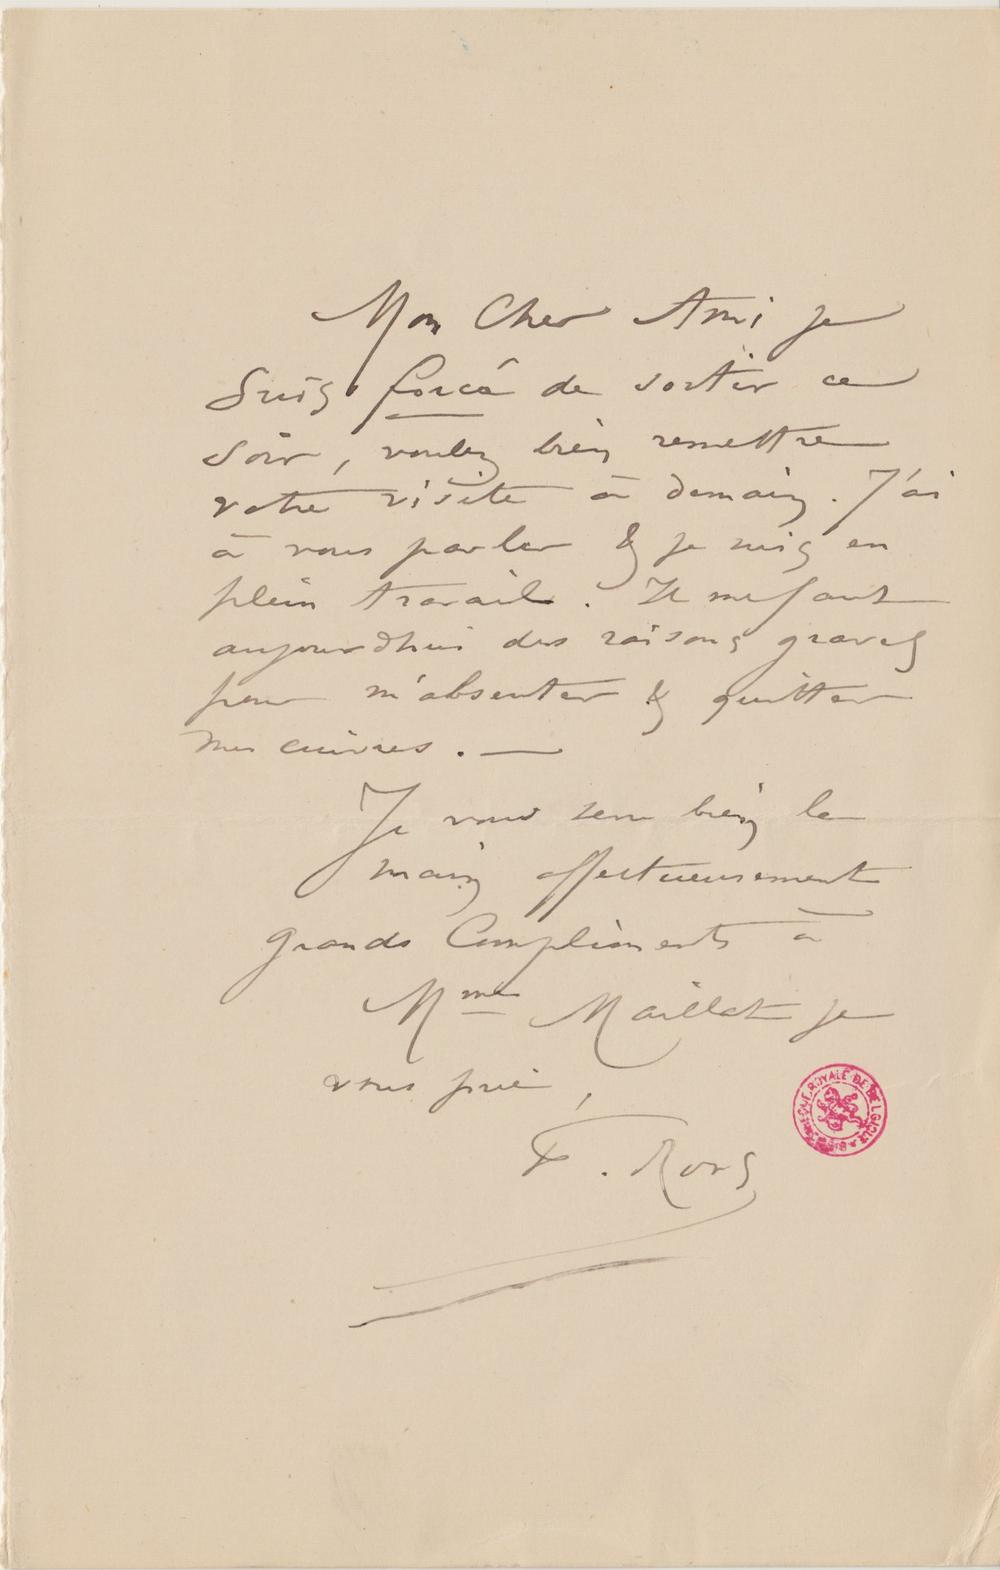 Mon Cher Ami je
suis forcé de sortir ce
soir, voulez bien remettre
votre visite à demain. J'ai
à vous parler & je suis en
plein travail. Il me faut
aujourdhui des raisons graves
pour m'absenter & quitter
mes cuivres. —
Je vous serre bien la
main affectueusement
grands Compliments à
Mme Maillat je
vous prie,
F. Rops
BIBLIOTHEQUE ROYALE DE BELGIQUE